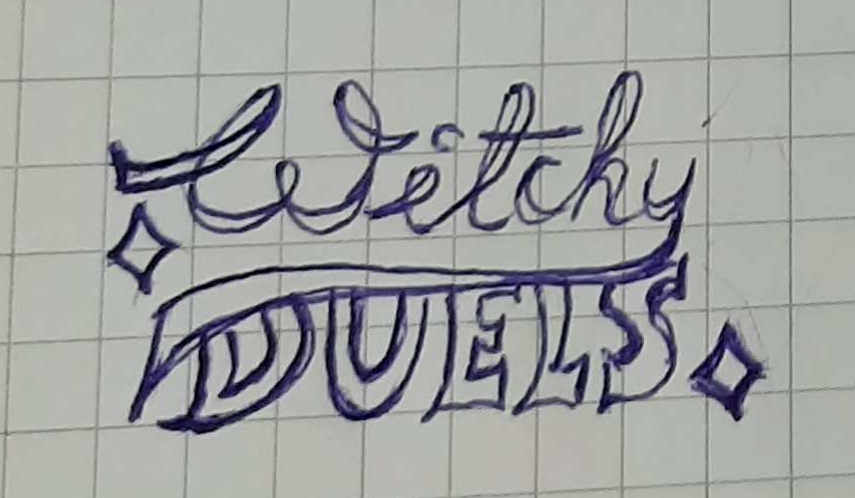 Witchy
DUELS